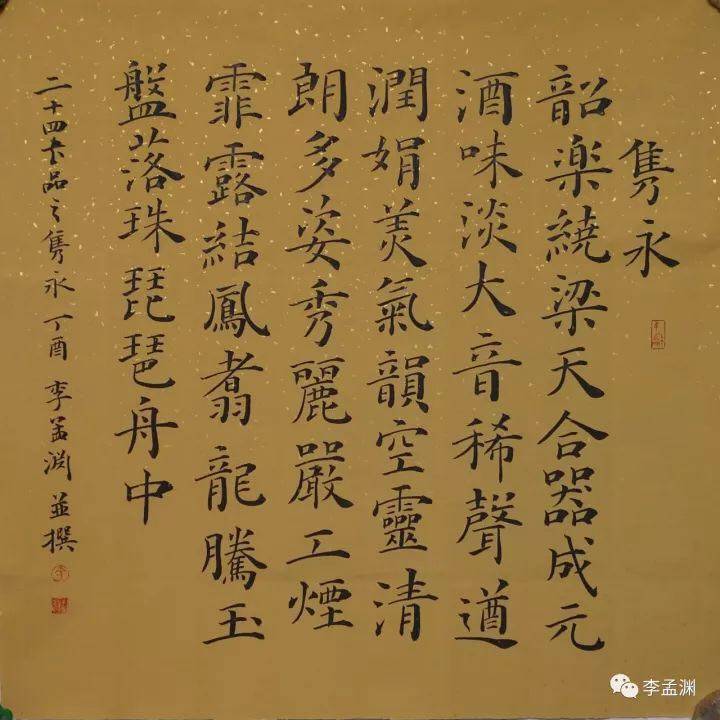 雋永
韶楽繞梁天合器成元
酒味淡大音稀聲遒
潤娟羙氣韻空靈清
朗多姿秀麗嚴工煙
霏露結鳳翥龍騰玉
盤落珠琵琶舟中
二十四书品之雋永 丁酉 李孟渊 並撰
李孟渊